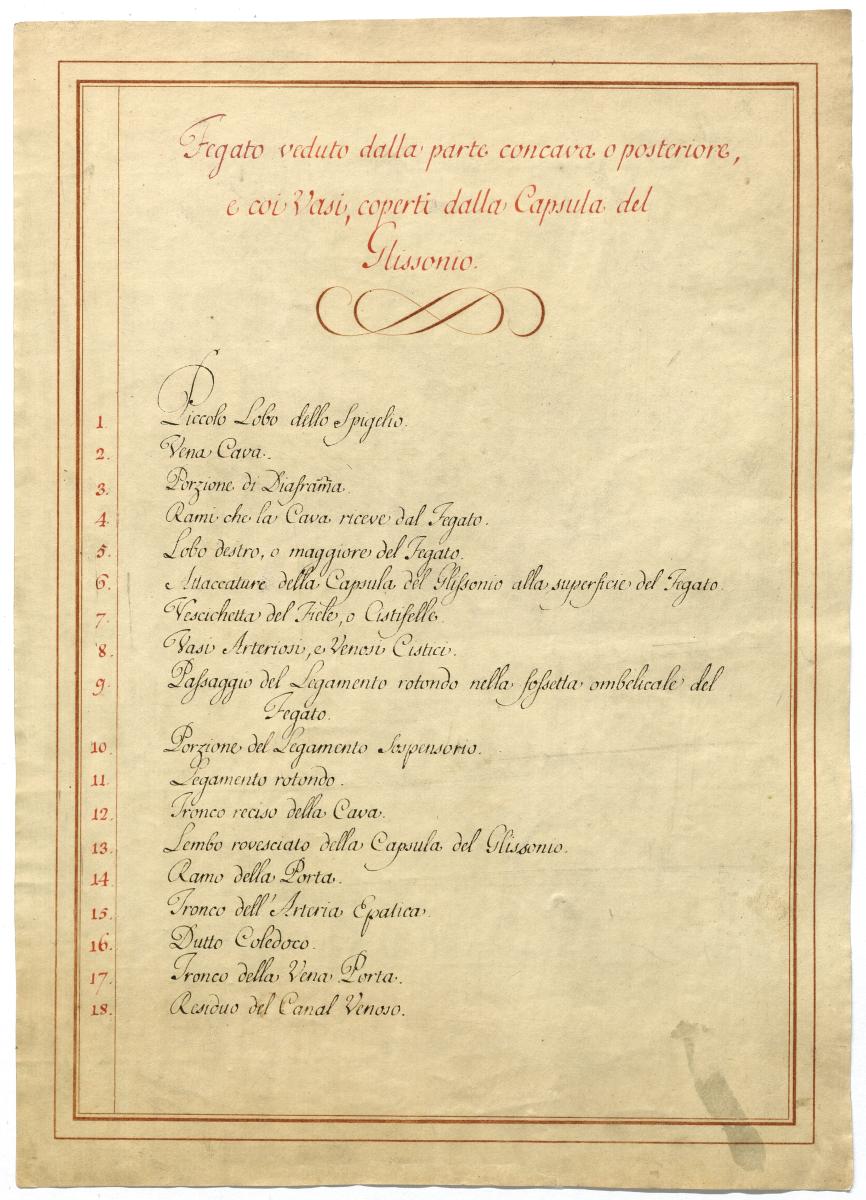 Fegato veduto dalla parte concava o posteriore,
e coi Vasi, coperti dalla Capsula del
Glissonio.
1. Piccolo Lobo dello Spigelio.
2. Vena Cava.
3. Porzione di Diafram̃a.
4. Rami che la Cava riceve dal Fegato.
5. Lobo destro, o maggiore del Fegato.
6. Attaccature della Capsula del Glissonio alla superficie del Fegato.
7. Vescichetta del Fiele, o Cistifelle.
8. Vasi Arteriosi, e Venosi Cistici.
9. Passaggio del Legamento rotondo nella fossetta ombelicale del
Fegato.
10. Porzione del Legamento Sospensorio.
11. Legamento rotondo.
12. Tronco reciso della Cava.
13. Lembo rovesciato della Capsula del Glissonio.
14. Ramo della Porta.
15. Tronco dell'Arteria Epatica.
16. Dutto Coledoco.
17. Tronco della Vena Porta.
18. Residuo del Canal Venoso.